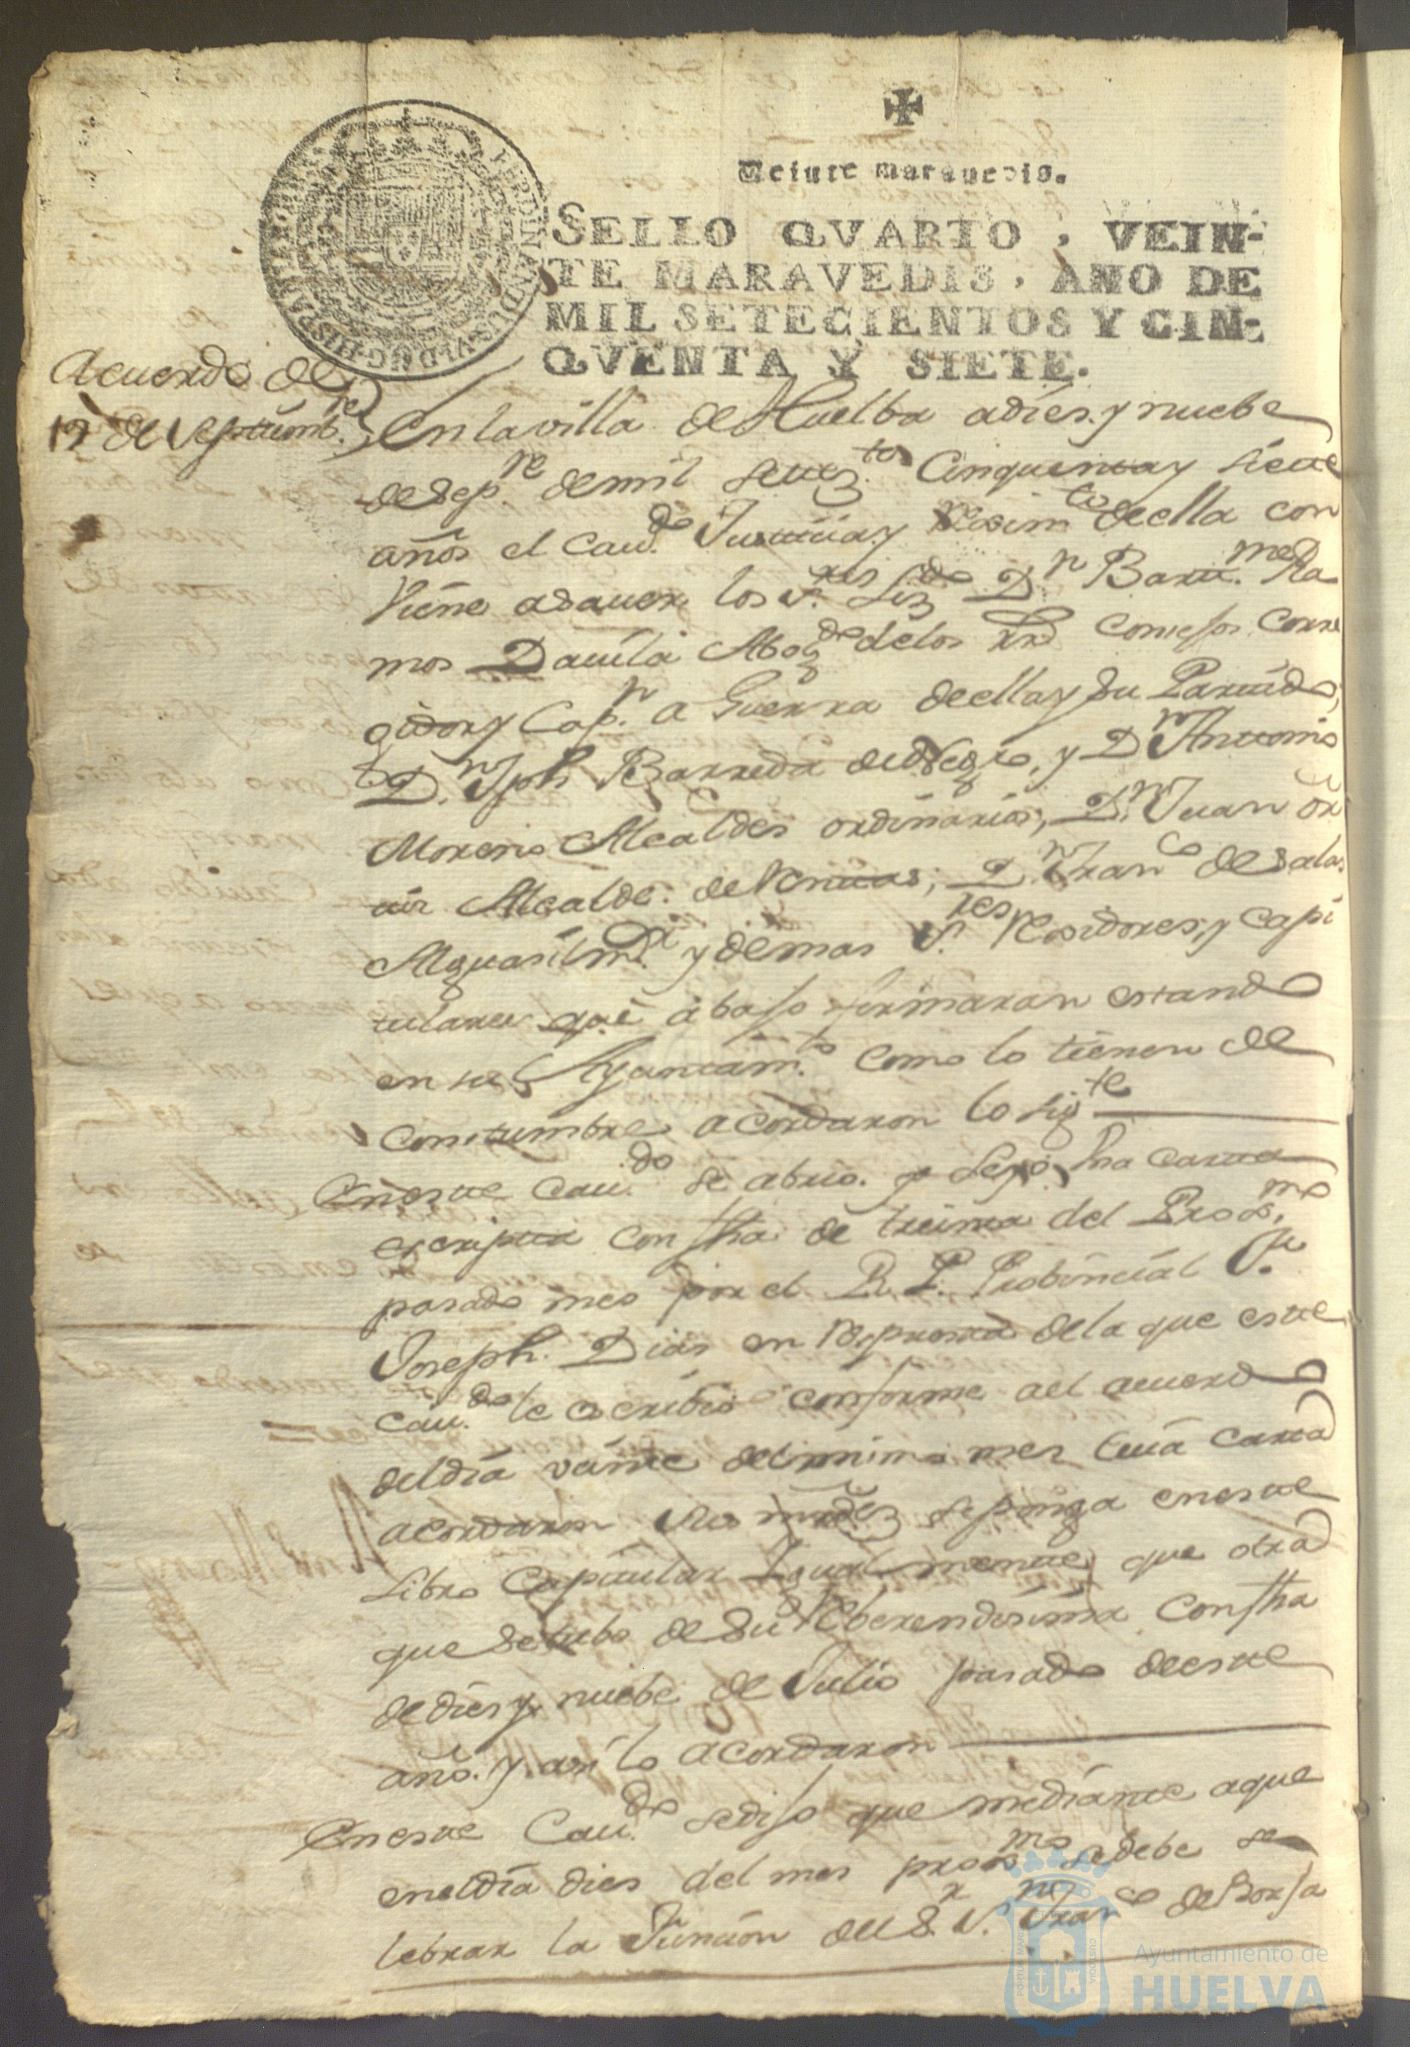 ✠
Veinte maravedis.
SELLO QVARTO, VEIN-
TE MARAVEDIS, AÑO DE
MIL SETECIENTOS Y CIN-
QVENTA Y SIETE.
Acuerdo de
19 de Septiembre
En la villa de Huelba a dies y nuebe
de Sepre de mil Setezto Cinquenta y siete
años el Cavdo Justicia y Reximto de ella con
viene a saver los sres Lizdo Dn Bartme Ra
mos Davila Abogdo de los Rs Consejos Corre
gidor y Capn a Guerra de ella y su Partido,
Dn Jph Barreda y Dn Antonio
Moreno Alcaldes ordinarios, Dn Juan
Alcalde de Dn Franco de Salas
Alguasil mr y demas sres Rexidores, y Capi
tulares que abajo firmaran estando
en su Ayuntamto como lo tienen de
constumbre acordaron lo sigte
En este Cavdo se abrio y leyo Una Carta
escripta con fha de treinta del Proxmo
pasado mes por el R. P. Provincial
Joseph Dias en respuesta de la que este
Cavdo le escribio conforme al acuerdo
del dia veinte del mismo mes
acordaron sus mrdez se ponga en este
Libro Capitular Igualmente que otra
que se tubo de su Reberendisima con fha
de dies y nuebe de Julio pasado de este
año y asi lo acordaron
En este Cavdo se dijo que mediante a que
en el dia dies del mes proxmo se debe se
lebrar la Funsion del Sr Sn Franco de Borja
Ayuntamiento de
HUELVA